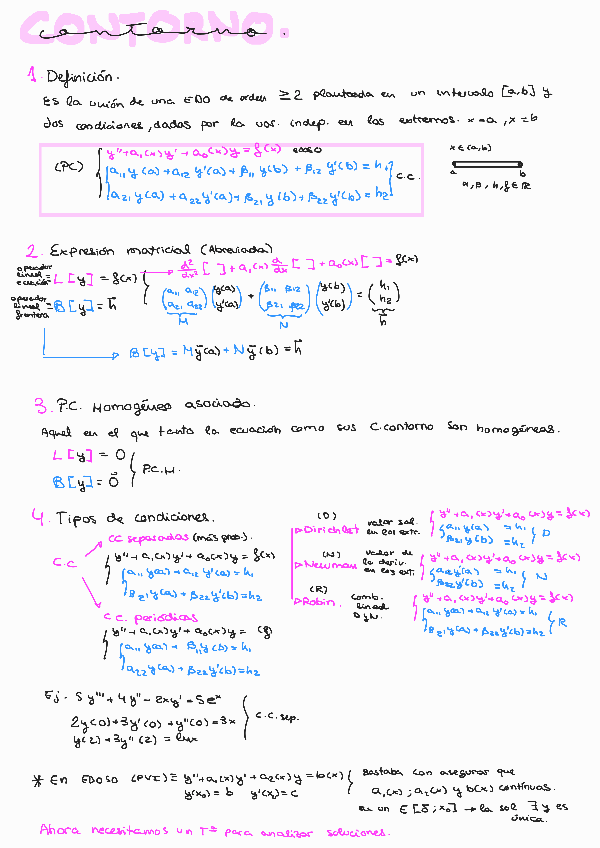 CONTORNO.
contorno.
1. Definición.
Es la unión de una EDO de orden ≥2 planteada en un intervalo [a,b] y
dos condiciones, dadas por la var. indep. en los extremos. x=a, x=b
(PC) { y''+a₁(x)y'+a₀(x)y = f(x) EDO2O
a₁₁y(a)+a₁₂y'(a)+β₁₁y(b)+β₁₂y'(b)=h₁
a₂₁y(a)+a₂₂y'(a)+β₂₁y(b)+β₂₂y'(b)=h₂ } C.C.
x∈(a,b)
a b
α,β,h,f∈ℝ
2. Expresión matricial (Abreviada)
operador lineal ecuación = L[y] = f(x) → d²/dx² [ ] + a₁(x) d/dx [ ] + a₀(x) [ ] = f(x)
operador lineal frontera = B[y] = h⃗ (a₁₁ a₁₂ a₂₁ a₂₂)(y(a) y'(a)) + (β₁₁ β₁₂ β₂₁ β₂₂)(y(b) y'(b)) = (h₁ h₂)
M N h⃗
B[y] = My⃗(a)+Ny⃗(b)=h⃗
3. P.C. Homogéneo asociado.
Aquel en el que tanto la ecuación como sus C.contorno son homogéneas.
L[y] = 0
B[y] = 0⃗ } P.C.H.
4. Tipos de condiciones.
C.C
CC separadas (más prob.)
y''+a₁(x)y'+a₀(x)y=f(x)
a₁₁y(a)+a₁₂y'(a)=h₁
β₂₁y(b)+β₂₂y'(b)=h₂
C.C. periódicas
y''+a₁(x)y'+a₀(x)y=
a₁₁y(a)+β₁₁y(b)=h₁
a₂₂y'(a)+β₂₂y'(b)=h₂
(D)
Dirichlet valor sol. en los extr. y''+a₁(x)y'+a₀(x)y=f(x)
a₁₁y(a) =h₁
β₂₁y(b) =h₂ } D
(N)
Newman valor de la deriv. en los ext. y''+a₁(x)y'+a₀(x)y=f(x)
a₁₂y'(a) =h₁
β₂₂y'(b) =h₂ } N
(R)
Robin. comb. lineal D y N. y''+a₁(x)y'+a₀(x)y=f(x)
a₁₁y(a)+a₁₂y'(a)=h₁
β₂₁y(a)+β₂₂y'(b)=h₂ } R
Ej. 5y'''+4y''-2xy'=5eˣ
2y(0)+3y'(0)+y''(0)=3x
y(2)+3y''(2)=lnx } C.C.sep.
* En EDOSO (PVI) ≡ y''+a₁(x)y'+a₂(x)y=b(x) bastaba con asegurar que
y(x₀)=b y'(x₀)=c a₁(x); a₂(x) y b(x) continuas.
en un E[δ;x₀] → la sol ∃ y es
única.
Ahora necesitamos un Tª para analizar soluciones.